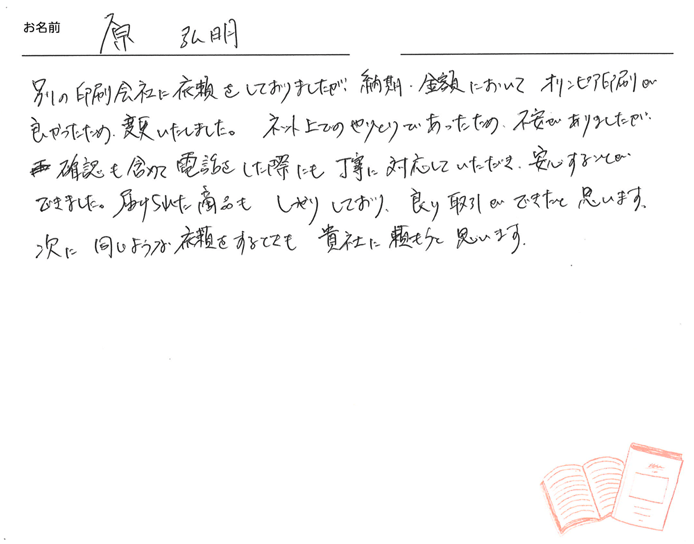 お名前 原 弘明
別の印刷会社に依頼をしておりましたが、納期・金額において オリンピア印刷が
良かったため、変更いたしました。 ネット上でのやりとりであったため、不安がありましたが、
確認も含めて電話をした際にも 丁寧に対応していただき、安心することが
できました。届けられた商品も しっかりしており、良い取引ができたと思います。
次に 同じような依頼をするときも 貴社に頼もうと思います。